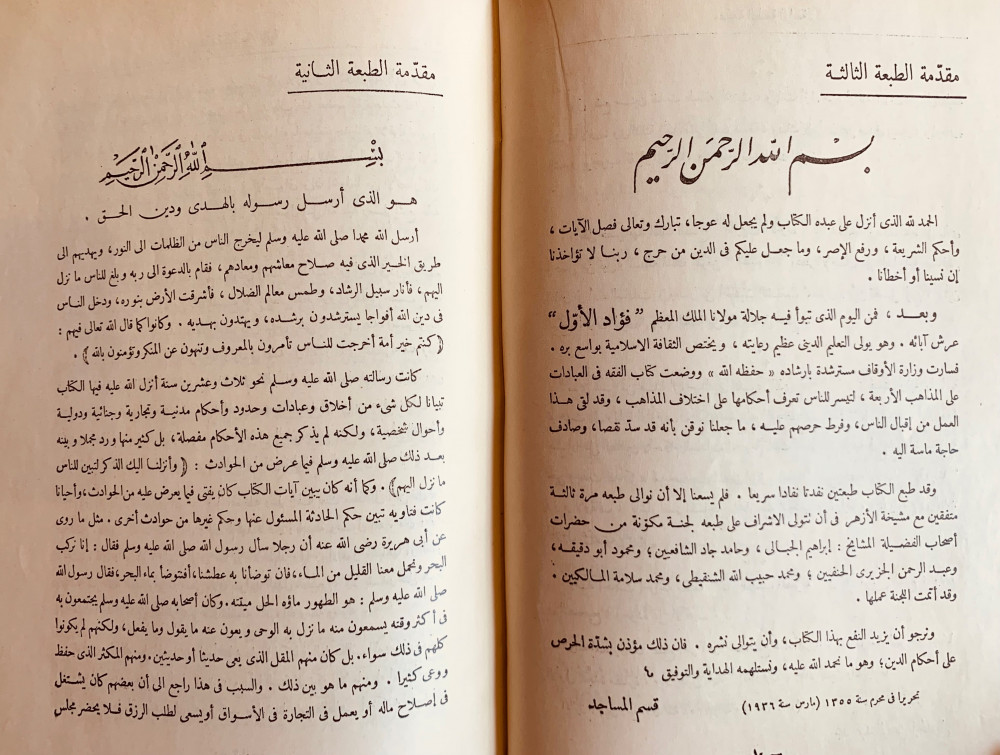 مقدّمة الطبعة الثالثة
بسم الله الرحمن الرحيم
الحمد لله الذى أنزل على عبده الكتاب ولم يجعل له عوجا، تبارك وتعالى فصل الآيات،
وأحكم الشريعة، ورفع الإصر، وما جعل عليكم فى الدين من حرج، ربنا لا تؤاخذنا
إن نسينا أو أخطأنا.
وبعد، فمن اليوم الذى تبوأ فيه جلالة مولانا الملك المعظم "فؤاد الأوّل"
عرش آبائه. وهو يولى التعليم الدينى عظيم رعايته، ويختص الثقافة الاسلامية بواسع بره.
فسارت وزارة الأوقاف مسترشدة بارشاده «حفظه الله» ووضعت كتاب الفقه فى العبادات
على المذاهب الأربعة، لتيسر للناس تعرف أحكامها على اختلاف المذاهب، وقد لقى هذا
العمل من إقبال الناس، وفرط حرصهم عليه، ما جعلنا نوقن بأنه قد سدّ نقصا، وصادف
حاجة ماسة اليه.
وقد طبع الكتاب طبعتين نفدتا نفادا سريعا. فلم يسعنا إلا أن نوالى طبعه مرة ثالثة
متفقين مع مشيخة الأزهر فى أن نتولى الاشراف على طبعه لجنة مكوّنة من حضرات
أصحاب الفضيلة المشايخ: إبراهيم الجبالى، وحامد جاد الشافعيين؛ ومحمود أبو دقيقه،
وعبد الرحمن الجزيرى الحنفيين؛ ومحمد حبيب الله الشنقيطى، ومحمد سلامة المالكيين.
وقد أتمت اللجنة عملها.
ونرجو أن يزيد النفع بهذا الكتاب، وأن يتوالى نشره. فان ذلك مؤذن بشدّة الحرص
على أحكام الدين؛ وهو ما نحمد الله عليه، ونستلهمه الهداية والتوفيق
قسم المساجد
تحريرا فى محرم سنة ١٣٥٥ (مارس سنة ١٩٣٦)
مقدّمة الطبعة الثانية
بسم الله الرحمن الرحيم
هو الذى أرسل رسوله بالهدى ودين الحق.
أرسل الله محمدا صلى الله عليه وسلم ليخرج الناس من الظلمات الى النور، ويهديهم الى
طريق الخير الذى فيه صلاح معاشهم ومعادهم، فقام بالدعوة الى ربه وبلغ للناس ما نزل
اليهم، فأنار سبيل الرشاد، وطمس معالم الضلال، فأشرقت الأرض بنوره، ودخل الناس
فى دين الله أفواجا يسترشدون برشده، ويهتدون بهديه. وكانوا كما قال الله تعالى فيهم:
(كنتم خير أمة أخرجت للناس تأمرون بالمعروف وتنهون عن المنكر وتؤمنون بالله).
كانت رسالته صلى الله عليه وسلم نحو ثلاث وعشرين سنة أنزل الله عليه فيها الكتاب
تبيانا لكل شىء من أخلاق وعبادات وحدود وأحكام مدنية وتجارية وجنائية ودولية
وأحوال شخصية، ولكنه لم يذكر جميع هذه الأحكام مفصلة، بل كثير منها ورد مجملا وبينه
بعد ذلك صلى الله عليه وسلم فيما عرض من الحوادث: (وأنزلنا اليك الذكر لتبين للناس
ما نزل اليهم). وكما أنه كان يبين آيات الكتاب كان يفتى فيما يعرض عليه من الحوادث، وأحيانا
كانت فتاويه تبين حكم الحادثة المسئول عنها وحكم غيرها من حوادث أخرى. مثل ما روى
عن أبى هريرة رضى الله عنه أن رجلا سأل رسول الله صلى الله عليه وسلم فقال: إنا نركب
البحر ونحمل معنا القليل من الماء، فان توضأنا به عطشنا، أفنتوضأ بماء البحر، فقال رسول الله
صلى الله عليه وسلم: هو الطهور ماؤه الحل ميتته. وكان أصحابه صلى الله عليه وسلم يجتمعون به
فى أكثر وقته يسمعون منه ما نزل به الوحى ويعون عنه ما يقول وما يفعل، ولكنهم لم يكونوا
كلهم فى ذلك سواء. بل كان منهم المقل الذى يعى حديثا أو حديثين. ومنهم المكثر الذى حفظ
ووعى كثيرا. ومنهم ما هو بين ذلك. والسبب فى هذا راجع الى أن بعضهم كان يشتغل
فى إصلاح ماله أو يعمل فى التجارة فى الأسواق أو يسعى لطلب الرزق فلا يحضر مجلس